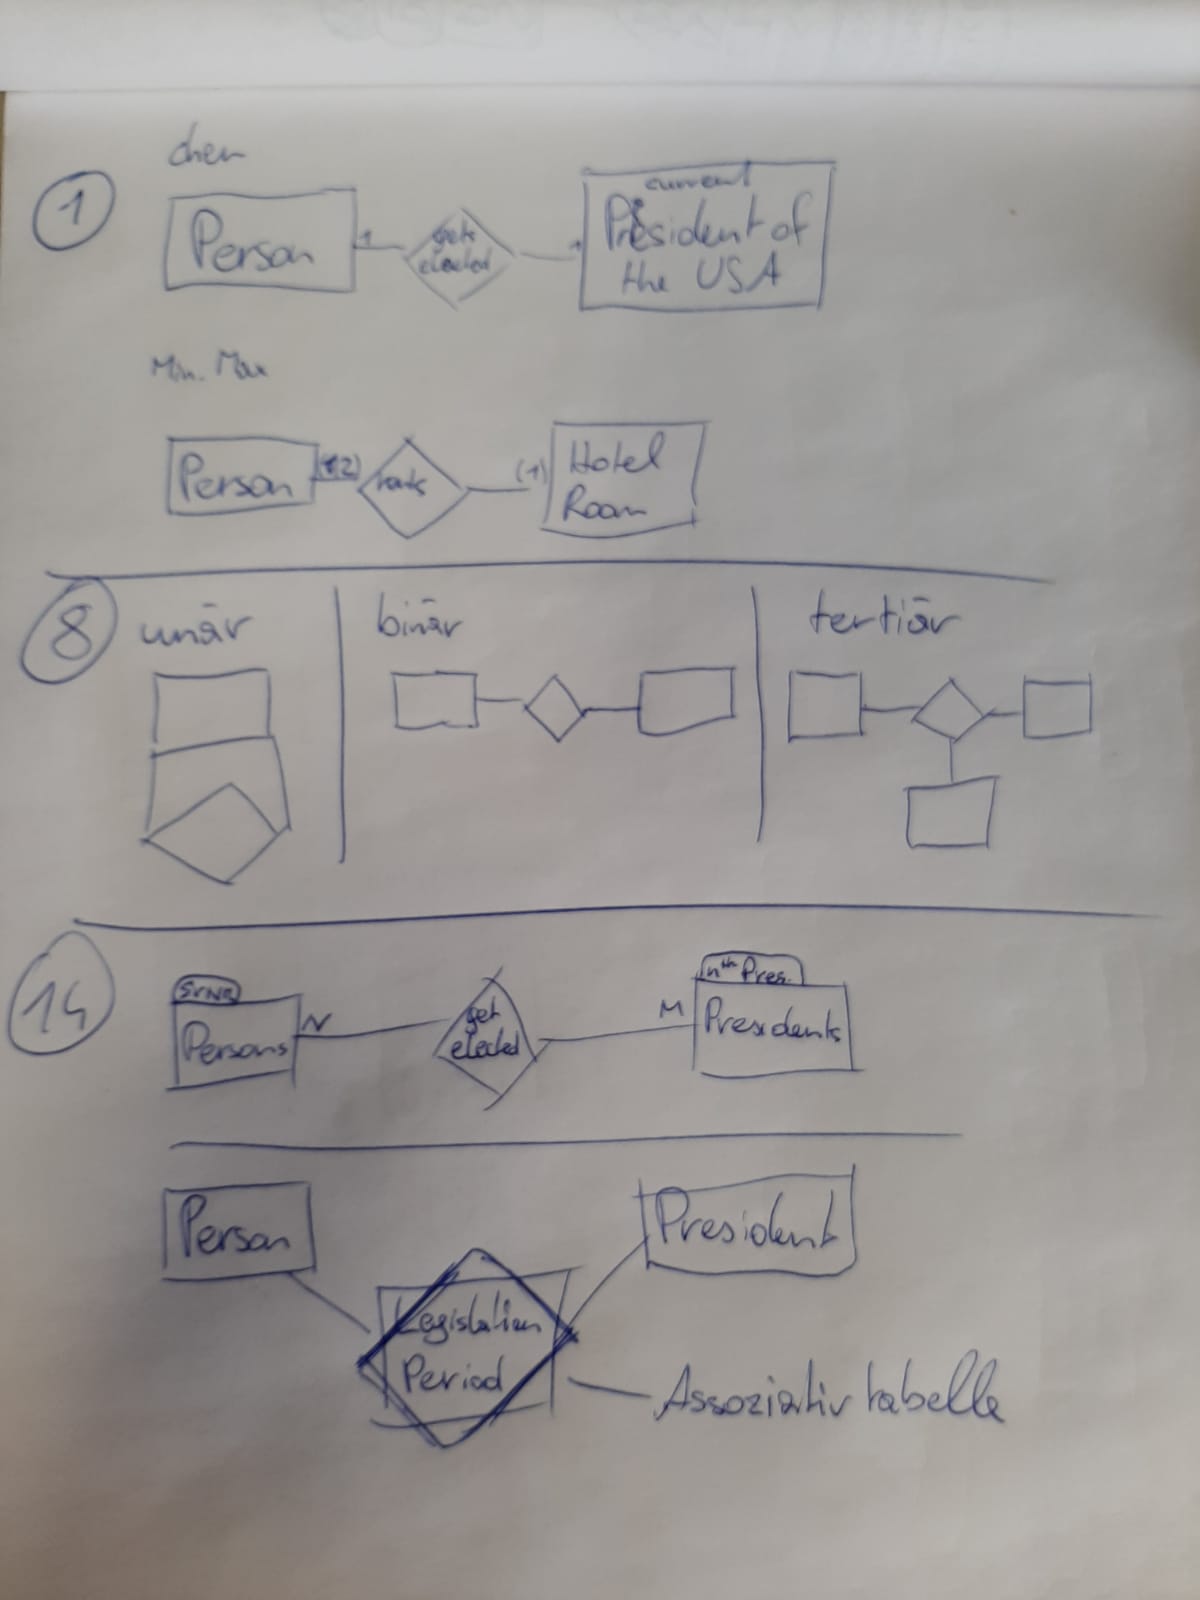 chen
1
Person
1
gets
elected
1
current
President of
the USA
Min. Max
Person
rents
(1)
Hotel
Room
8
unär
binär
tertiär
14
SVNR
Persons
N
get
elected
M
nth Pres.
Presidents
Person
President
Legislation
Period
Assoziativtabelle